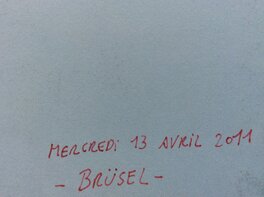 MERCREDi 13 AVRIL 2011
- BRÜSEL -